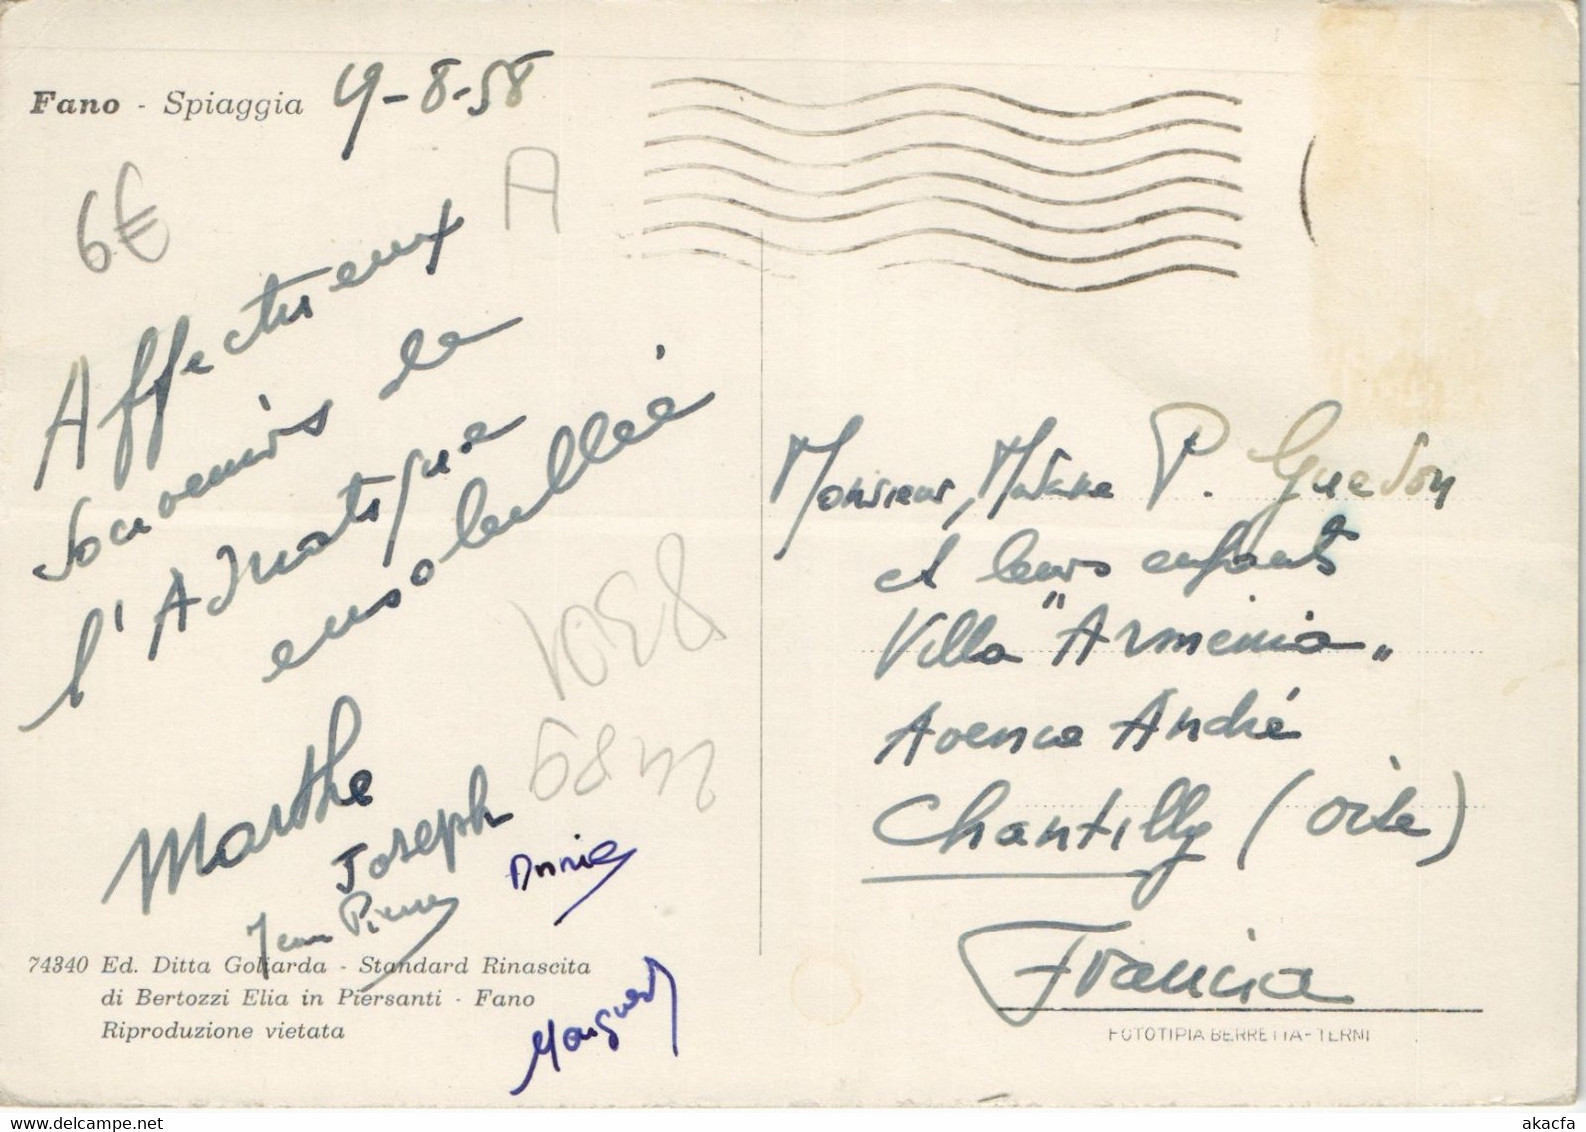 Fano - Spiaggia 9-8-58
6€
A
Affectueux
souvenirs de
l'Adriatique
ensoleillée
Marthe
Joseph
Jean Pierre
Annie
Monsieur, Madame P. Guedon
et leurs enfants
Villa "Armenia"
Avenue André
Chantilly (Oise)
Francia
74340 Ed. Ditta Goliarda - Standard Rinascita
di Bertozzi Elia in Piersanti - Fano
Riproduzione vietata
FOTOTIPIA BERRETTA-TERNI
www.delcampe.net
akacfa